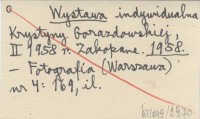 Wystawa indywidualna
Krystyny Gorazdowskiej,
II 1958 r. Zakopane. 1958.
— Fotografia (Warszawa)
nr 4: 169, il.